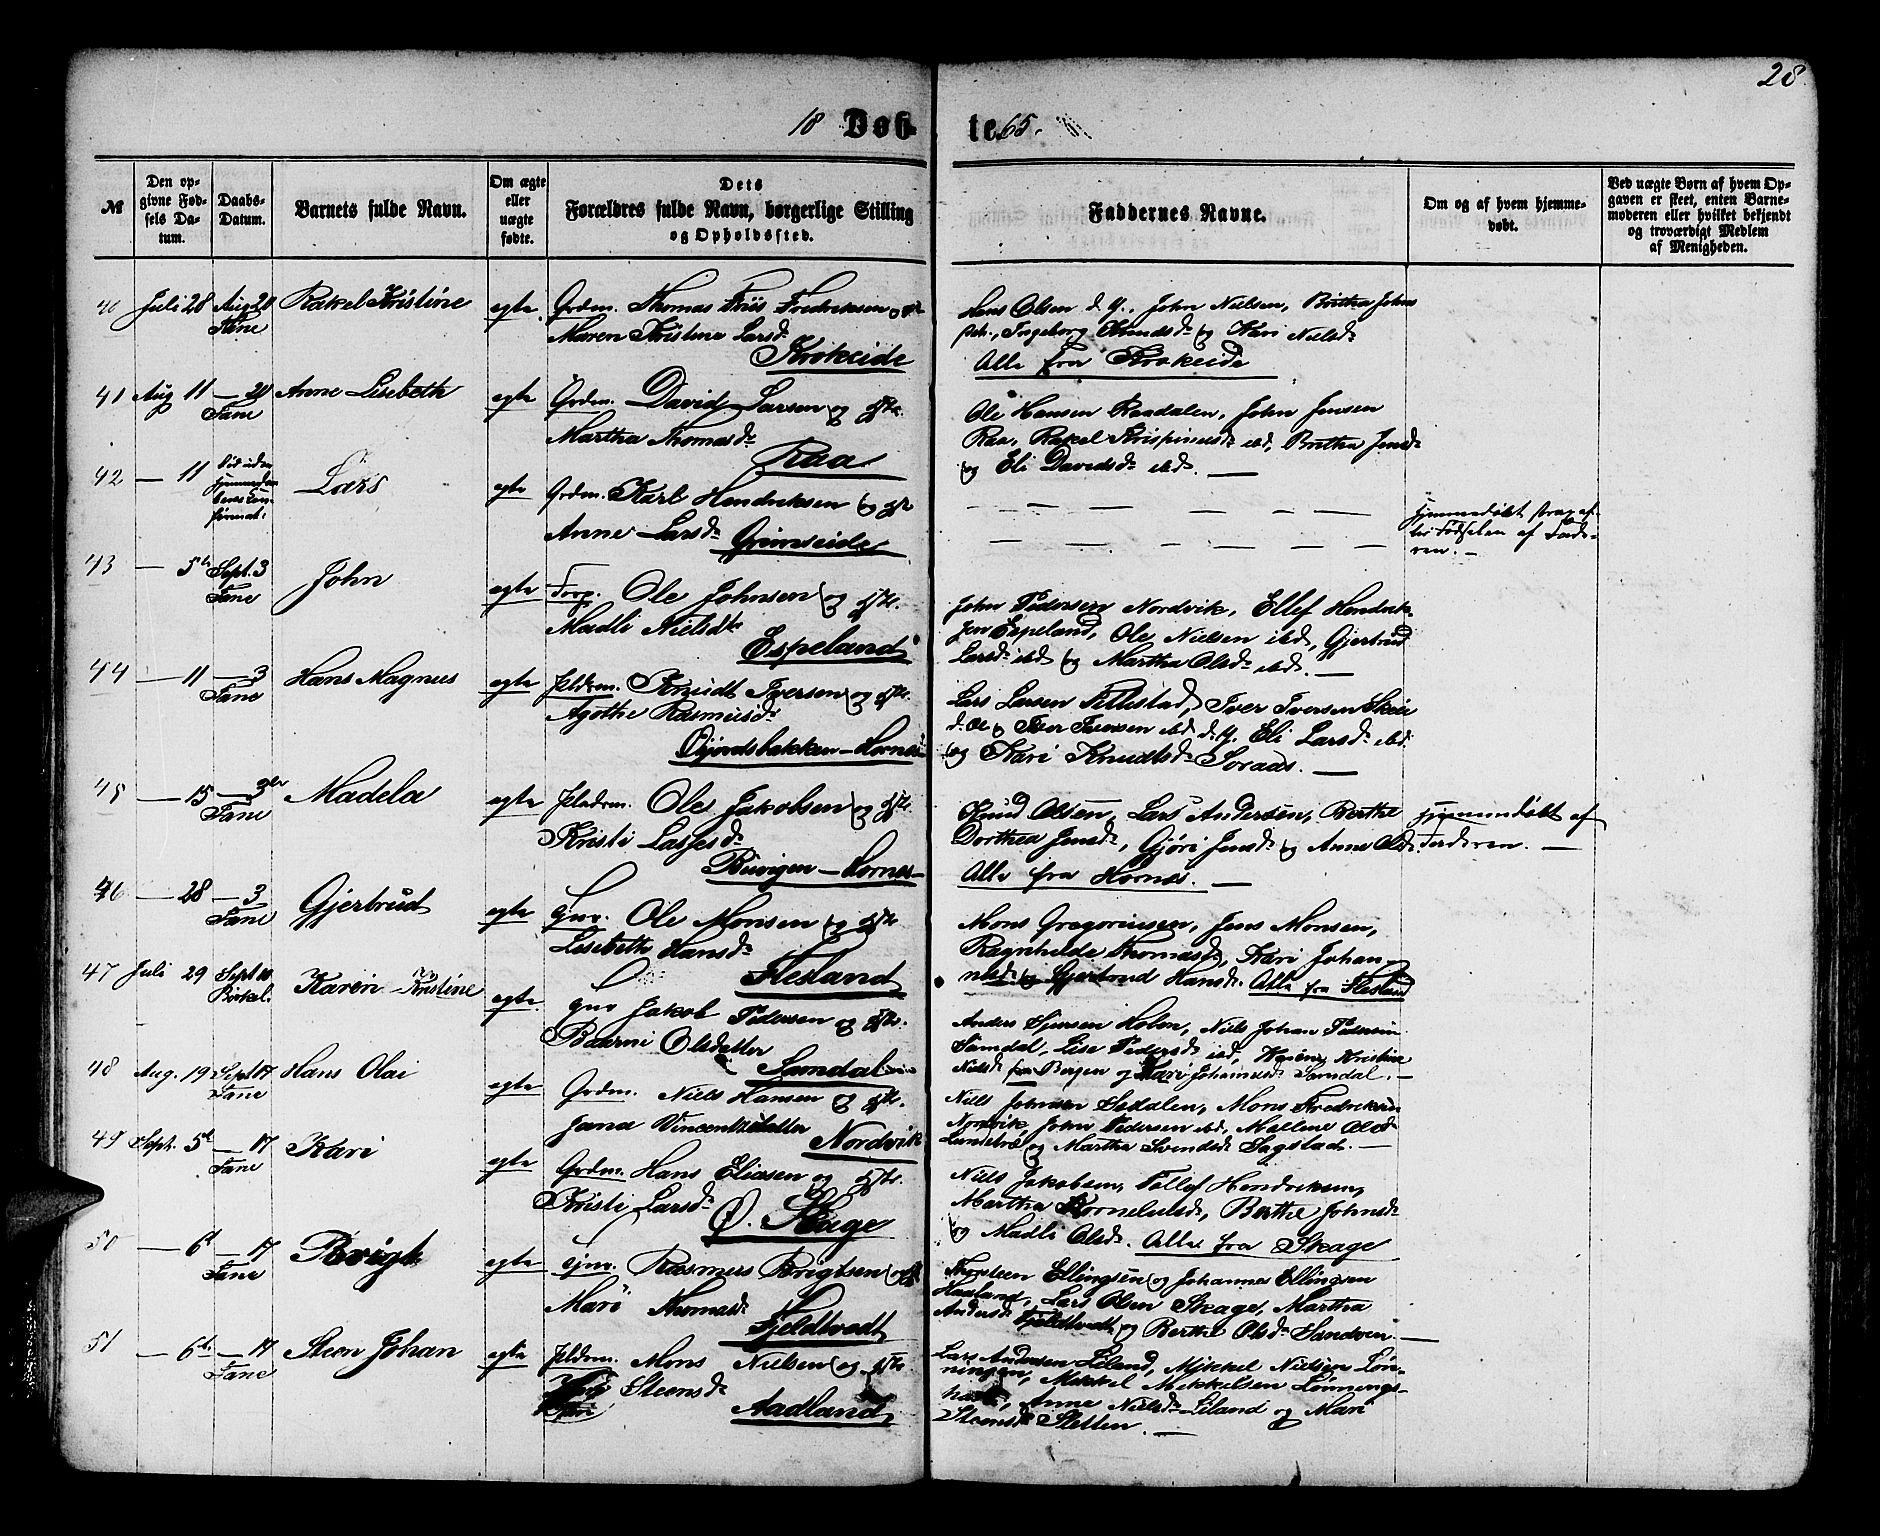 28
18 Døb- te 65.
№
Den opgivne Fødsels Datum.
Daabs-Datum.
Barnets fulde Navn.
Om ægte eller uægte fødte.
Dets Forældres fulde Navn, borgerlige Stilling og Opholdssted.
Faddernes Navne.
Om og af hvem hjemmedøbt.
Ved uægte Børn af hvem Opgaven er skeet, enten Barnemoderen eller hvilket bekjendt og troværdigt Medlem af Menigheden.
40 Juli 28 Aug 20 Rakel Kristine egte Grdm. Thomas Friis Fredriksen og
Fane Maren Kristine Larsd.
Krokeide
Hans Olsen d. y., John Nielsen, Britha Johns
Ingeborg Knudsd. og Kari Nielsd.
Alle fra Krokeide
41 Aug 11 — 20 Anne Lisebeth egte Grdm. David Larsen og Hstr.
Fane Martha Thomasd.
Raa
Ole Hansen Raadalen, John Jensen
Raa, Rakel Krispinusd. ibd, Britha Jensd.
og Eli Davidsd. ibd. —
42 — 11 Lars egte Grdm. Karl Hendriksen og Hstr
Anne Larsd. Grimseide
hjemmedøbt strax efter Fødselen af Faderen. —
43 — 5te Sept. 3 John egte Forp. Ole Johnsen og Hstr.
Fane Madli Nielsdtr
Espeland
John Pedersen Nordvik, Ellef Hendriksen
Espeland, Ole Nielsen ibd, Gjertrud
Larsd. ibd og Martha Olsd. ibd. —
44 — 11 — 3 Hans Magnus egte Pldsm. Knudt Iversen og Hstr.
Fane Agothe Rasmusd.
Hornes
Lars Larsen Titlestad, Iver Iversen Skeie
d. æ. og Iver Iversen ibd d. y. Eli Larsd. ibd.
og Kari Knudtsd. Soraas. —
45 — 15 — 3die Madela egte Pladsm. Ole Jakobsen og Hstr.
Fane Kristi Lassesd.
Buvigen — Hornes
Knud Olsen, Lars Andersen, Berthe
Dorthea Jensd., Gjøri Jensd. og Anne Olsd.
Alle fra Hornes. —
hjemmedøbt af Faderen. —
46 — 28 — 3 Gjertrud egte Gmd. Ole Monsen og Hstr
Fane Lisebeth Hansd.
Flesland
Mons Gregoriusen, Jens Monsen,
Ragnhilde Thomasd., Kari Johan-
nesd. og Gjertrud Hansd. Alle fra Flesland
47 Juli 29 Sept 10 Karen Kristine egte Jakob Pedersen og Hstr.
Birkel. Olsdatter
Samdal
Anders Sjursen Holen, Niels Johan Pedersen
Samdal, Lise Pedersd. ibd, Karen Kristine
Nielsd. fra Bergen og Kari Johannesd. Samdal. —
48 Aug. 19 Sept 17 Hans Olai egte Grdm. Niels Hansen og Hstr.
Fane Jana Vincentsdatter
Nordvik
Niels Johnsen Sædalen, Mons Fredriksen
Nordvik, John Pedersen ibd, Mallene Olsd.
og Martha Svendsd. Sagstad. —
49 Sept. 5te — 17 Kari egte Grdm. Hans Eliasen og Hstr.
Fane Kristi Larsd.
Ø. Skage
Niels Jakobsen, Tollef Hendriksen,
Martha Korneliusd., Berthe Johnsd.
og Madli Olsd. Alle fra Skage
50 — 6te — 17 Brigt egte Rasmus Brigtsen og
Fane Mari Thomasd.
Fjeldtvedt
Thorsteen Ellingsen og Johannes Ellingsen
Haaland, Lars Olsen Skage, Martha
Andersd. Fjeldtvedt og Berthe Olsd. Sandven. —
51 — 6te — 17 Steen Johan egte Pldsm. Mons Nielsen og Hstr.
Fane Steensd.
Aadland
Lars Andersen Liland, Mikkel Nielsen Løn-
ningen, Mikkel Mikkelsen Lønnings-
Anne Nielsd. Liland og Mari
Steensd. Sletten. —